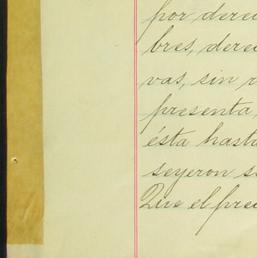 por derec
bres, derec
vas, sin
presenta,
ésta hasta
seyeron
Que el